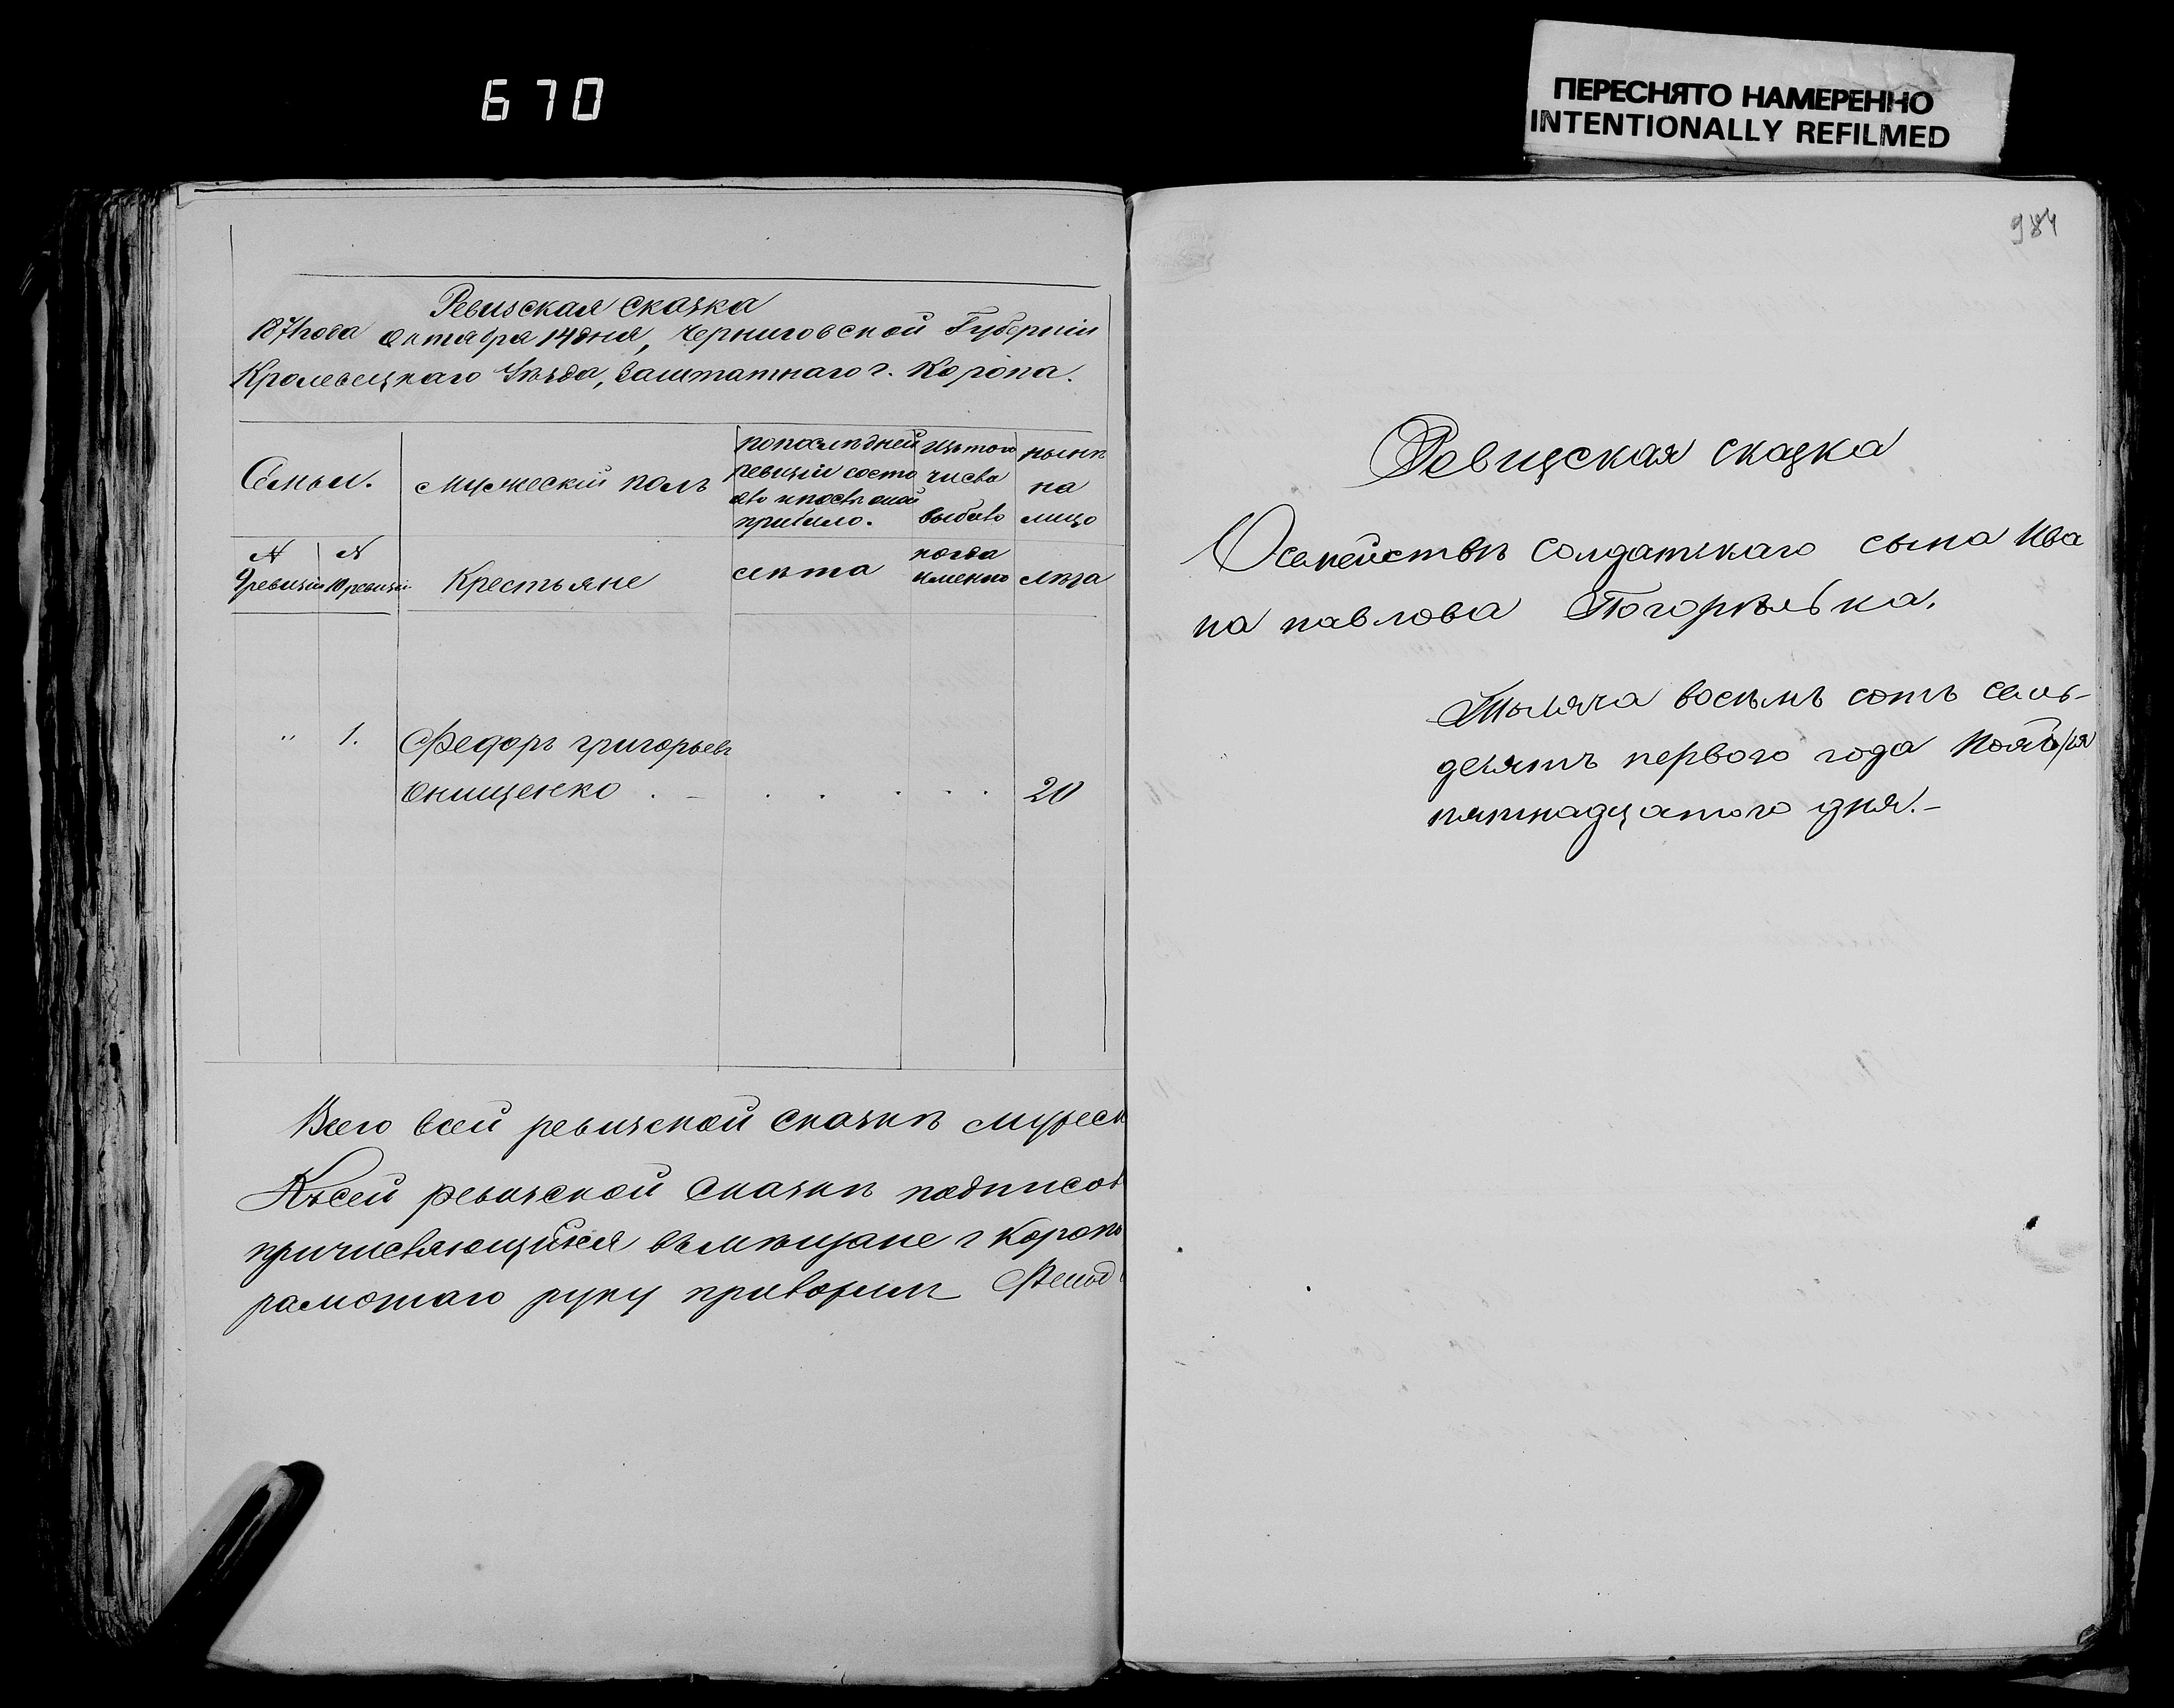 670
ПЕРЕСНЯТО НАМЕРЕННО
INTENTIONALLY REFILMED
Ревизская сказка
1871 года Октября 14 дня, Черниговской Губерніи
Кролевецкаго Уѣзда, Заштатнаго г. Коропа.
Семьи.
Мужескій полъ
попослѣдней
ревизіи состо
яло и послѣ оной
прибыло.
Изъ того
числа
выбыло
нынѣ
на
лицо
№
9 ревизіи
№
10 ревизіи
Крестьяне
лѣта
когда
именно
лѣта
" 1. Федоръ Григорьевъ
Онищенко . - . . . . . 20
Всего всей ревизской сказкѣ мужеск
Къ сей ревизской сказкѣ подписов
причисляющійся въ мѣщане г Короп
рамотнаго руку приложилъ
984
Ревизская сказка
О семействѣ Солдатскаго сына Ива
на Павлова Погорѣлька.
Тысяча восемь сотъ семь-
десятъ первого года Ноября
пятнадцатого дня.-